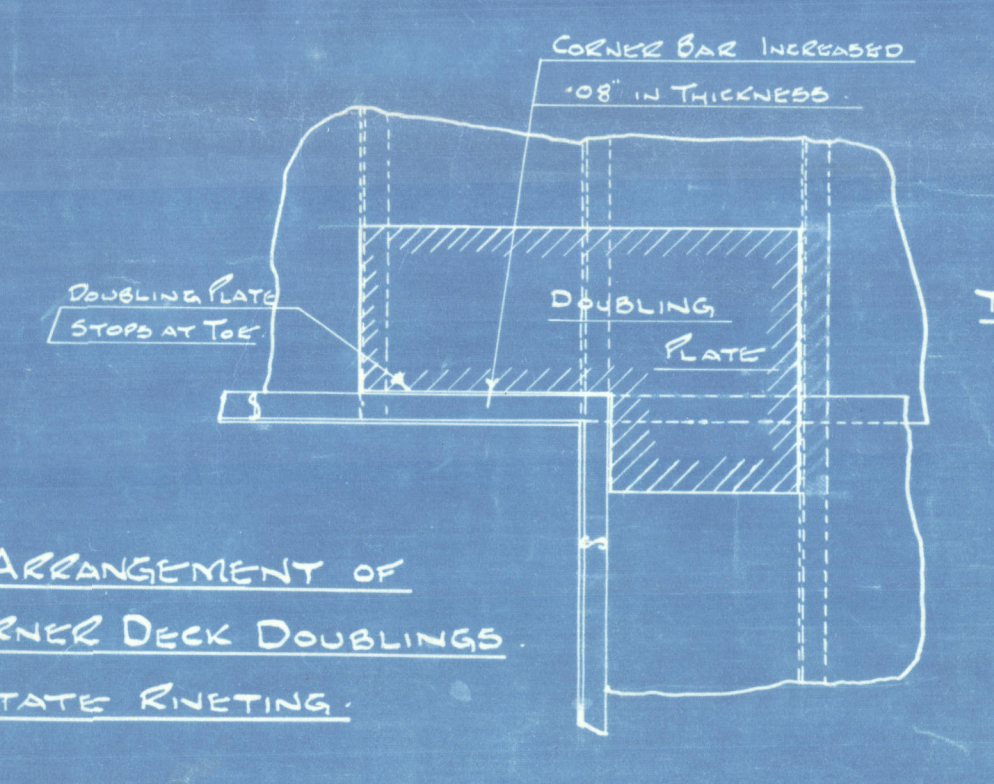 CORNER BAR INCREASED
·08" IN THICKNESS.
DOUBLING PLATE
STOPS AT TOE.
DOUBLING
PLATE
ARRANGEMENT OF
RNER DECK DOUBLINGS.
TATE RIVETING.